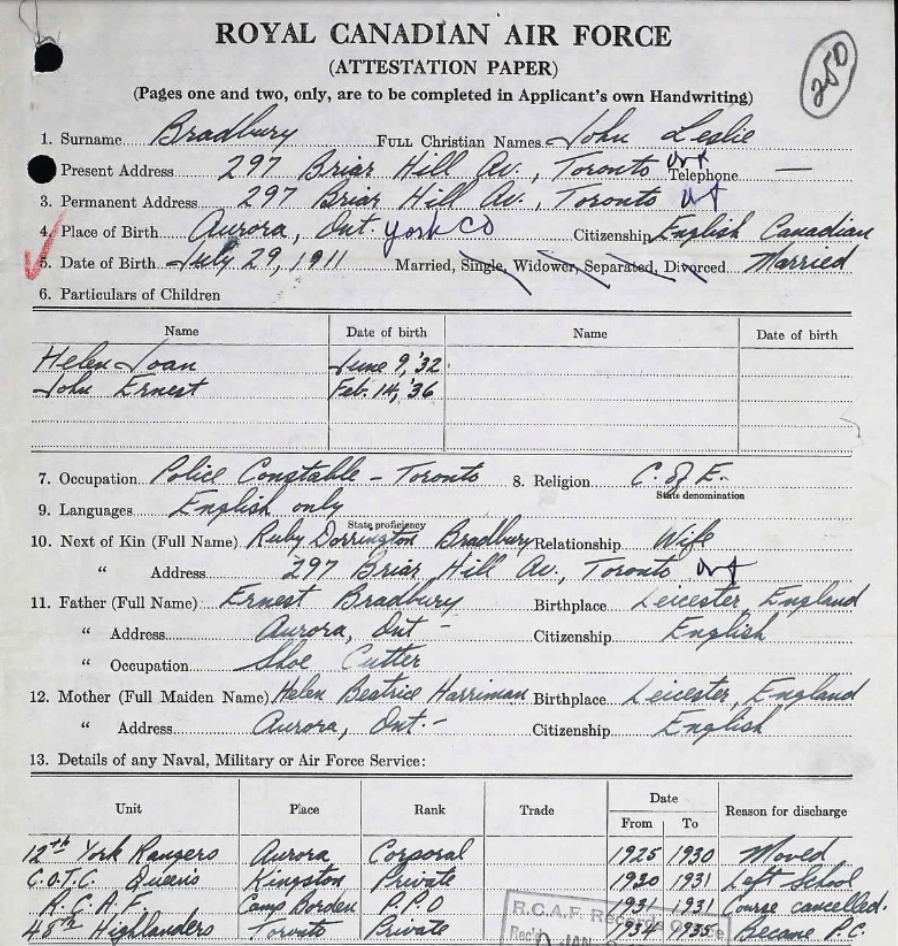 250
ROYAL CANADIAN AIR FORCE
(ATTESTATION PAPER)
(Pages one and two, only, are to be completed in Applicant's own Handwriting)
1. Surname Bradbury FULL Christian Names John Leslie
Present Address 297 Briar Hill Av., Toronto Ont Telephone —
3. Permanent Address 297 Briar Hill Av., Toronto Ont
4. Place of Birth Aurora, Ont. York Co Citizenship English Canadian
5. Date of Birth July 29, 1911 Married, Single, Widower, Separated, Divorced Married
6. Particulars of Children
Name Date of birth Name Date of birth
Helen Joan June 9, '32
John Ernest Feb. 14, '36
7. Occupation Police Constable - Toronto 8. Religion C. of E.
State denomination
9. Languages English only
State proficiency
10. Next of Kin (Full Name) Ruby Dorrington Bradbury Relationship Wife
" Address 297 Briar Hill Av., Toronto Ont
11. Father (Full Name) Ernest Bradbury Birthplace Leicester, England
" Address Aurora, Ont - Citizenship English
" Occupation Shoe Cutter
12. Mother (Full Maiden Name) Helen Beatrice Harriman Birthplace Leicester, England
" Address Aurora, Ont. - Citizenship English
13. Details of any Naval, Military or Air Force Service:
Unit Place Rank Trade Date Reason for discharge
From To
12th York Rangers Aurora Corporal 1925 1930 Moved
C.O.T.C. Queens Kingston Private 1930 1931 Left School
R.C.A.F. Camp Borden P.P.O 1931 1931 Course cancelled.
48th Highlanders Toronto Private 1934 1935 Became P.C.
R.C.A.F. Records Office
Rec'd JAN